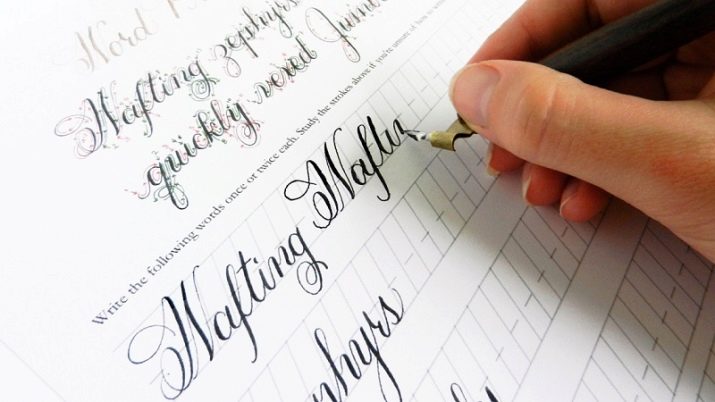 Word
Wafting zephyrs
quickly vexed
Write the following words once or twice each. Study the strokes above if you're unsure of how to
Wafting Waftin
ephyrs